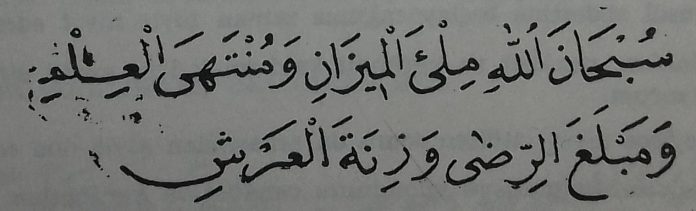 سُبْحَانَ اللهِ مِلْئَ الْمِيزَانِ وَمُنْتَهَى الْعِلْمِ
وَمَبْلَغَ الرِّضَى وَزِنَةَ الْعَرْشِ